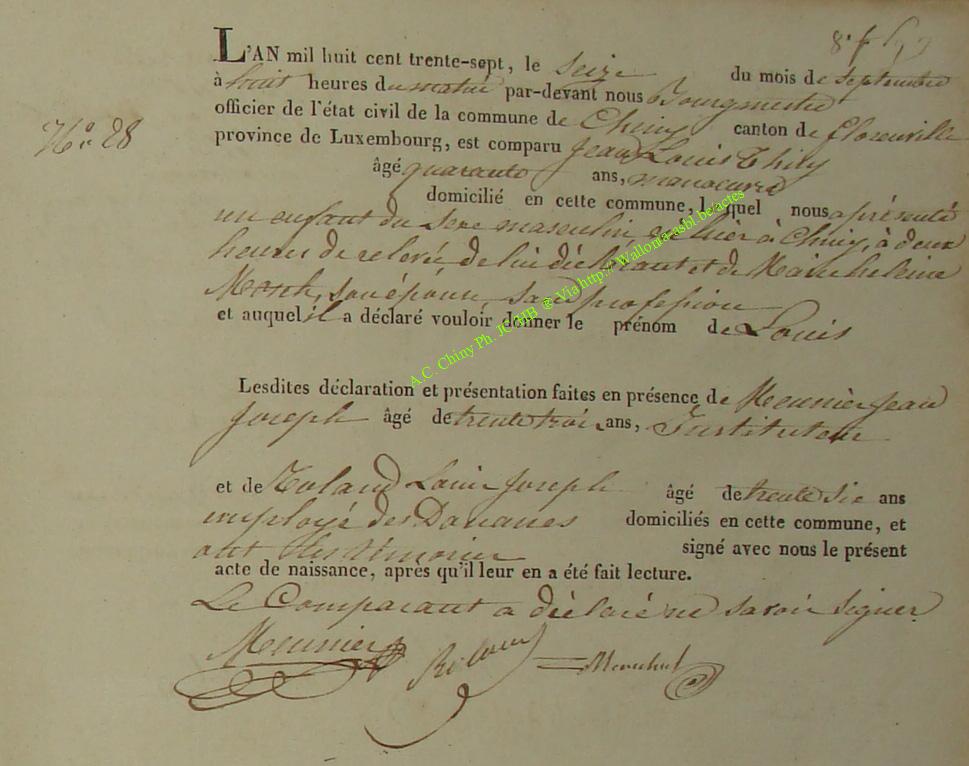 L'AN mil huit cent trente-sept, le Seize du mois de septembre
à huit heures du matin par-devant nous Bourgmestre
officier de l'état civil de la commune de Chiny canton de florenville
N.° 28
province de Luxembourg, est comparu Jean Louis Thiry
âgé quarante ans, manoeuvre
domicilié en cette commune, lequel nous a présenté
un enfant du sexe masculin, né hier à Chiny, à deux
heures de relevée, de lui déclarant et de
son épouse, sans profession
et auquel il a déclaré vouloir donner le prénom de Louis
A.C. Chiny Ph. JCHB @ Via http:// Wallonia-asbl be/actes
Lesdites déclaration et présentation faites en présence de Meunier Jean
Joseph âgé de trente trois ans, Instituteur
et de Roland Louis Joseph âgé de trente six ans
employé des Douanes domiciliés en cette commune, et
ont les témoins signé avec nous le présent
acte de naissance, après qu'il leur en a été fait lecture.
Le Comparant a déclaré ne savoir signer
Meunier